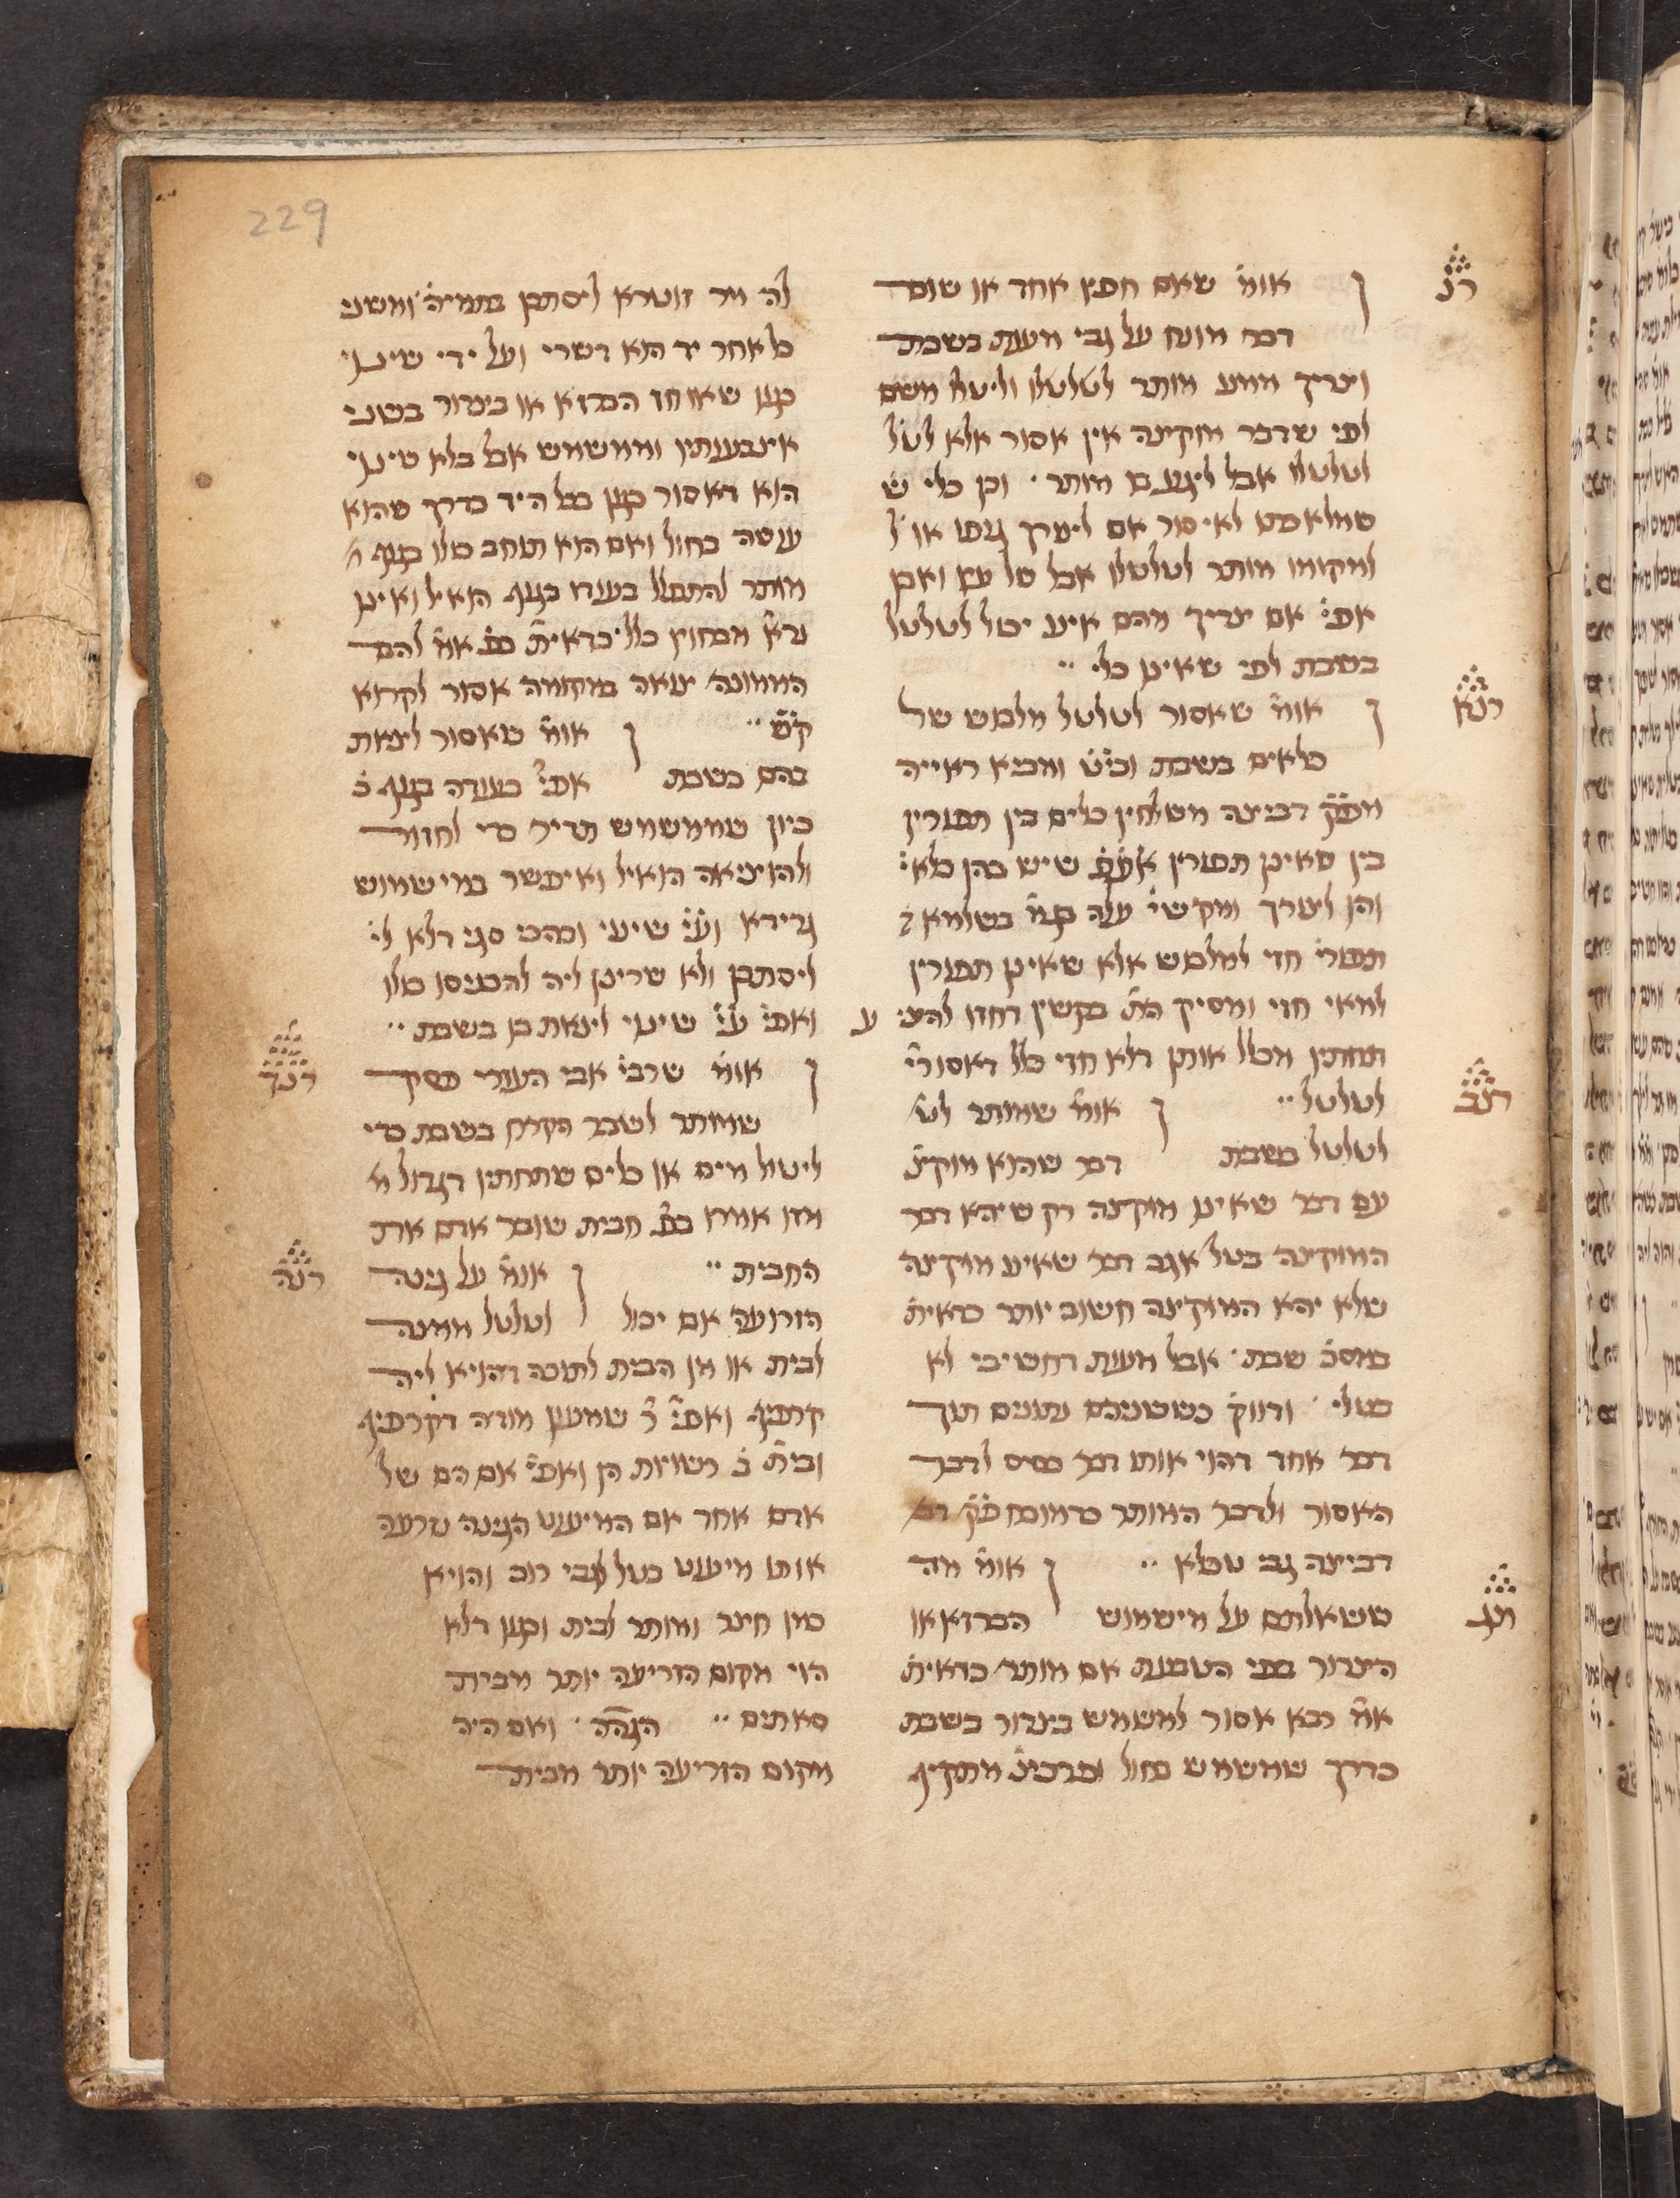 229
רנ
אומ' שאם חפץ אחד או שום
דבר מונח על גבי מעות בשבת
וצריך ממנו מותר לטלטלו וליטלו משם
לפי שדבר מוקצה אין אסור אלא לטל
לטלטלו אבל ליגע בם מותר · וכן כלי ש
שמלאכתו לאיסור אם לצורך גופו או ל
למקומו מותר לטלטלו אבל של עץ ואבן
אפי' אם צריך מהם אינו יכול לטלטל
בשבת לפי שאינן כלי ··
רנא
אומ' שאסור לטלטל מלבוש של
כלאים בשבת ומביא ראייה
דביצה משלחין כלים בין תפורין
בין שאינן תפורין אע"פ שיש בהן כלאי'
והן לצורך ומקשי' עלה בגמ' בשלמא
תפורי' חזי למלבוש אלא שאינן תפורין
למאי חזי ומסיק בקשין דחזו להציע
תחתיו מכלל אותן דלא חזי כלל דאסורי'
רנב
לטלטל ·· אומ' שמותר לט
לטלטל בשבת דבר שהוא מוקצ'
עם דבר שאינו מוקצה רק שיהא דבר
המוקצה בטל אגב דבר שאינו מוקצה
שלא יהא המוקצה חשוב יותר כדאית'
במסכ' שבת · אבל מעות דחשיבי לא
בטלי · ודווק' כששניהם נתונים תוך
דבר אחד דהוי אותו דבר בסיס לדבר
האסור ולדבר המותר כדמוכח
דביצה גבי טבלא ·· אומ' מה
רנג
ששאלתם על מישמוש הברזא או
הצרור בפי הטבעת אם מותר כדאית'
אמ' רבא אסור למשמש בצרור בשבת
כדרך שמשמש בחול ובפרכי' מתקיף
לה מר זוטרא ליסתכן בתמיה ומשני
כלאחר יד הוא דשרי ועל ידי שינוי
כגון שאוחז הברזא או בצרור בשני
אצבעותיו וממשמש אבל בלא שינוי
הוא דאסור כגון בכל היד כדרך שהוא
עושה בחול ואם הוא תוחב כולו בגוף
מותר להתפלל בעודו בגוף הואיל ואינו
נרא' מבחוץ כלל כדאית' אמ' להם
הממונה צואה במקומה אסור לקרוא
ק"ש ·· אומ' שאסור לצאת
בהם בשבת אפי' בעודה בגוף
כיון שממשמש תדיר כדי לחזור
ולהוציאה הואיל ואיפשר במישמוש
גרידא וע"י שינוי ובהכי סגי דלא לי
ליסתכן ולא שרינן ליה להכניסו כולו
ואפי' ע"י שינוי לצאת בו בשבת ··
רנד
אומ' שרבי' אבי העזרי פסק
שמותר לשבר הקרח בשבת כדי
ליטול מים או כלים שתחתיו דגדול מ
מזו אמרו חבית שובר אדם את
רנה
החבית ·· אומ' על גינה
הזרועה אם יכול לטלטל ממנה
לבית או מן הבית לתוכה דהויא ליה
קרפף ואפי' ר' שמעון מודה דקרפיף
ובית ב' רשויות הן ואפי' אם הם של
אדם אחד אם המיעוט הגינה זרועה
אותו מיעוט בטל לגבי רוב והויא
כמין חצר ומותר לבית וכגון דלא
הוי מקום הזריעה יותר מבית
סאתים ·· הגהה · ואם היה
מקום הזריעה יותר מבית